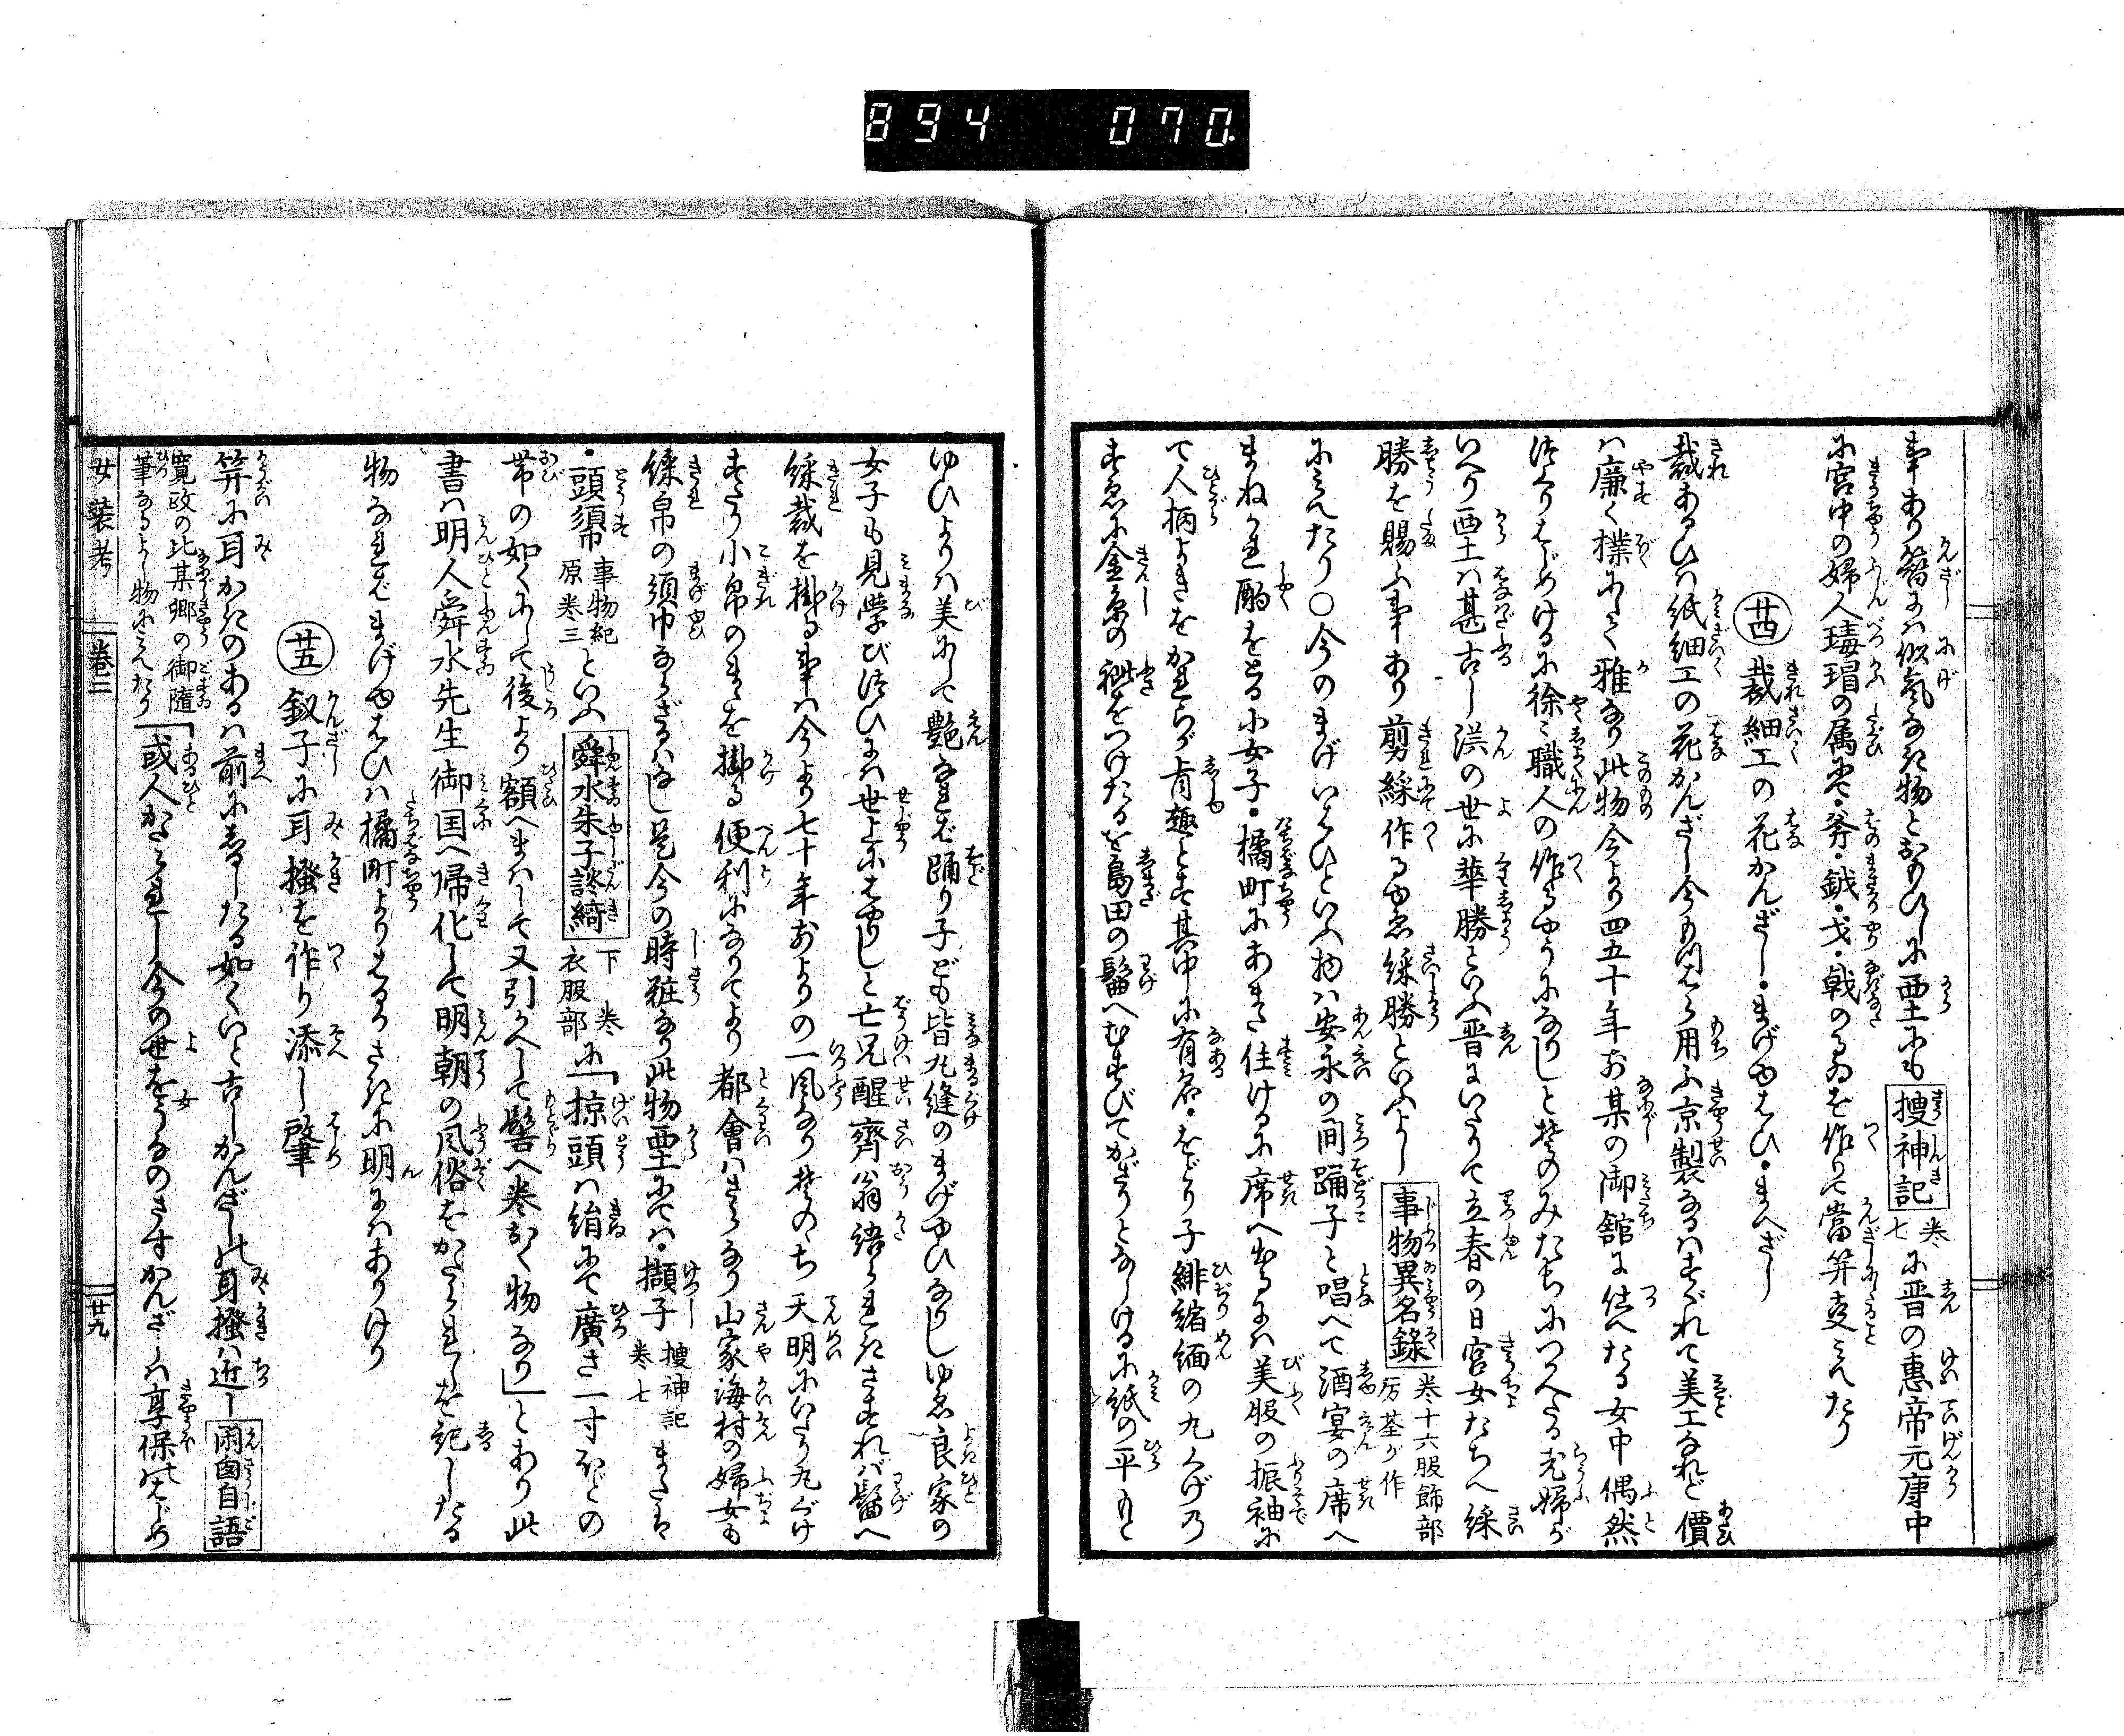 894 070.
事あり簪には似気なき物とおもひしに西土にも捜神記巻七に晋の恵帝元康中
に宮中の婦人瑇瑁の属にて斧・鉞・戈・戟のるゐを作りて當笄

廿四 裁細工の花かんざし・まげゆはひ・まへざし
裁あるひは紙細工の花かんざし今もつはら用ふ京製なるはすぐれて美工なれど價
は廉く撲にして雅なり此物今より四五十年前某の御舘に仕へたる女中偶然
作りはじめけるに徐々職人の作るやうになりしとそのみたちにつかへたる老婦が
いへり西土は甚古し漢の世に華勝といふ晋にいたりて立春の日宮女たちへ綵
勝を賜ふ事あり剪綵にて作るゆゑ綵勝といふよし事物異名録巻十六服飾部厉荃が作
にみえたり○今のまげいはひといふ物は安永の間踊子と唱へて酒宴の席へ
まねかれ酌をとる小女子・橘町にあまた住けるに席へ出るには美服の振袖に
て人柄よきをかれらが肯趣とす其中に有名・をどり子緋縮緬の丸ぐけの
すゑに金糸の総をつけたるを島田の髷へむすびてかざりとなしけるに紙の平もと
ゆひよりは美にして艶なれば踊り子ども皆丸縫のまげゆひなりしゆゑ良家の
女子も見学び結ひには世上にはやりしと亡兄醒齋翁語られきされば髷へ
綵裁を掛る事は今より七十年前よりの一風なりそのゝち天明にいたり丸ぐけ
すたり小帛のまゝを掛る便利になりてより都會はさらなり山家海村の婦女も
綵帛の須巾ならざるはなし是今の時粧なり此物西土にては・擷子捜神記巻七または
・頭須巾事物紀原巻三といふ舜水朱子談綺下巻衣服部に「掠頭は絹にて廣さ一寸ほどの
帯の如くにして後より額へまはして又引かへして髻へ巻おく物なり」とあり此
書は明人舜水先生御国へ帰化して明朝の風俗をかたられしを記したる
物なればまげゆはひは橘町よりはるかさきに明にはありけり

廿五 釵子に耳掻を作り添し肇
笄に耳かきのあるは前にしるしたる如くいと古しかんざしの耳掻は近し閑囱自語
寛政の比某卿の御隨筆なるよし物にみえたり「或人かたられし今の世をうなのさすかんざしは享保のはじめ
女装考 巻二 廿九